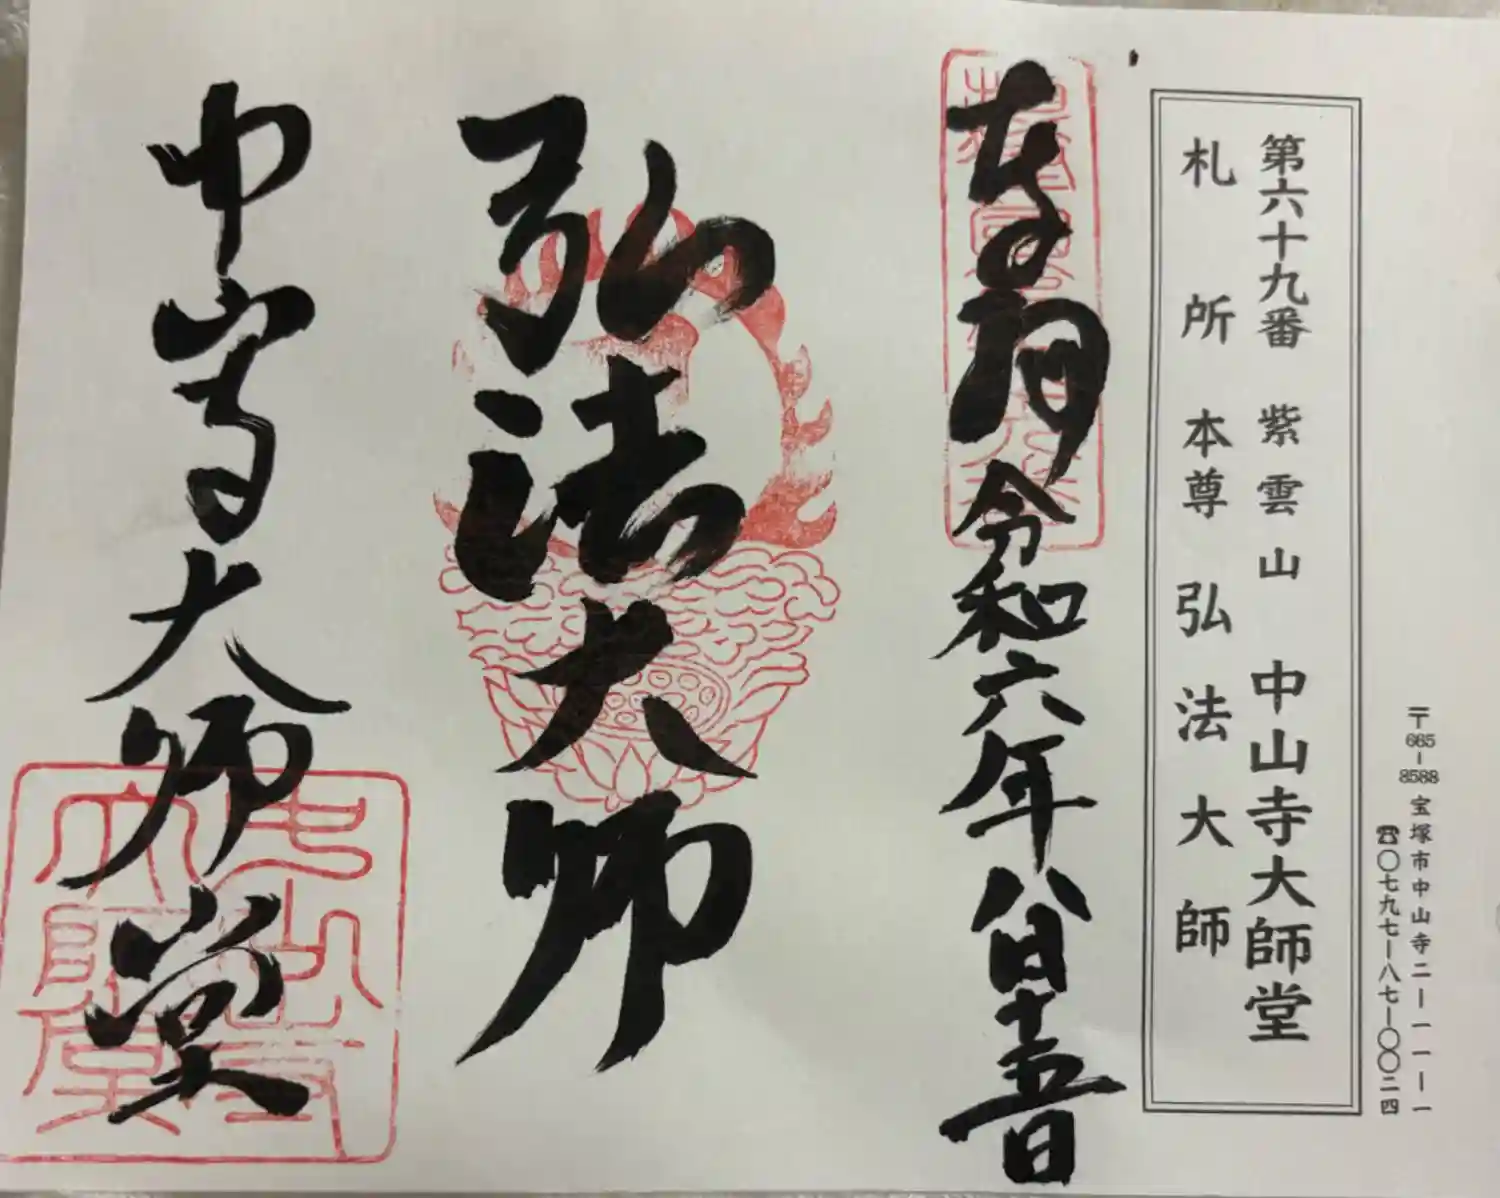 〒665-8588 宝塚市中山寺二ー一一ー一
☎〇七九七ー八七ー〇〇二四
第六十九番 紫雲山 中山寺大師堂
札所本尊 弘法大師
奉拝 令和六年八月十五日
弘法大師
中山寺大師堂
中山寺大師堂